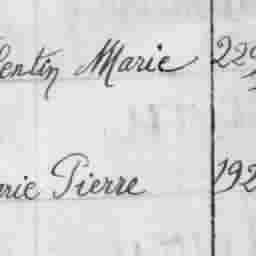 lentin Marie 229
arie Pierre 192